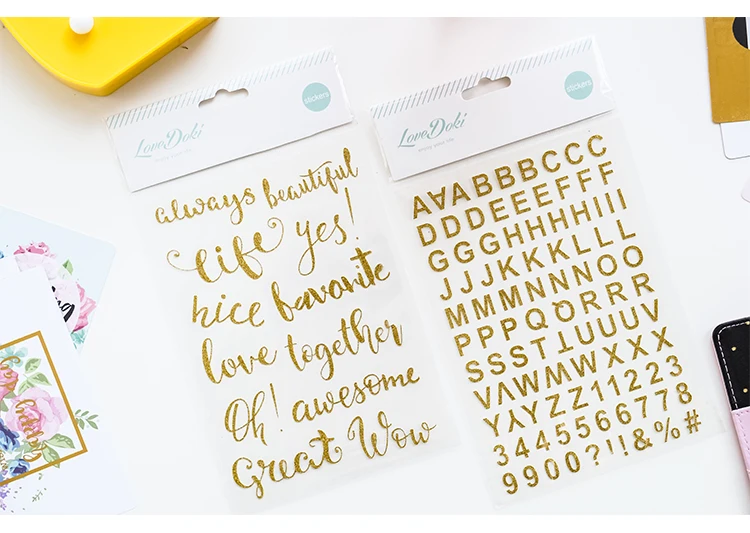 LoveDoki
stickers
always beautiful
life yes!
nice favorite
love together
Oh! awesome
Great Wow
LoveDoki
stickers
AAABBBCCC
DDDEEEFFF
GGGHHHIII
JJJKKKLLL
MMMNNNOOO
PPPQQRRR
SSSTTUUUV
VVWWXXX
YYYZZ11223
3445566778
99900?!!&%#